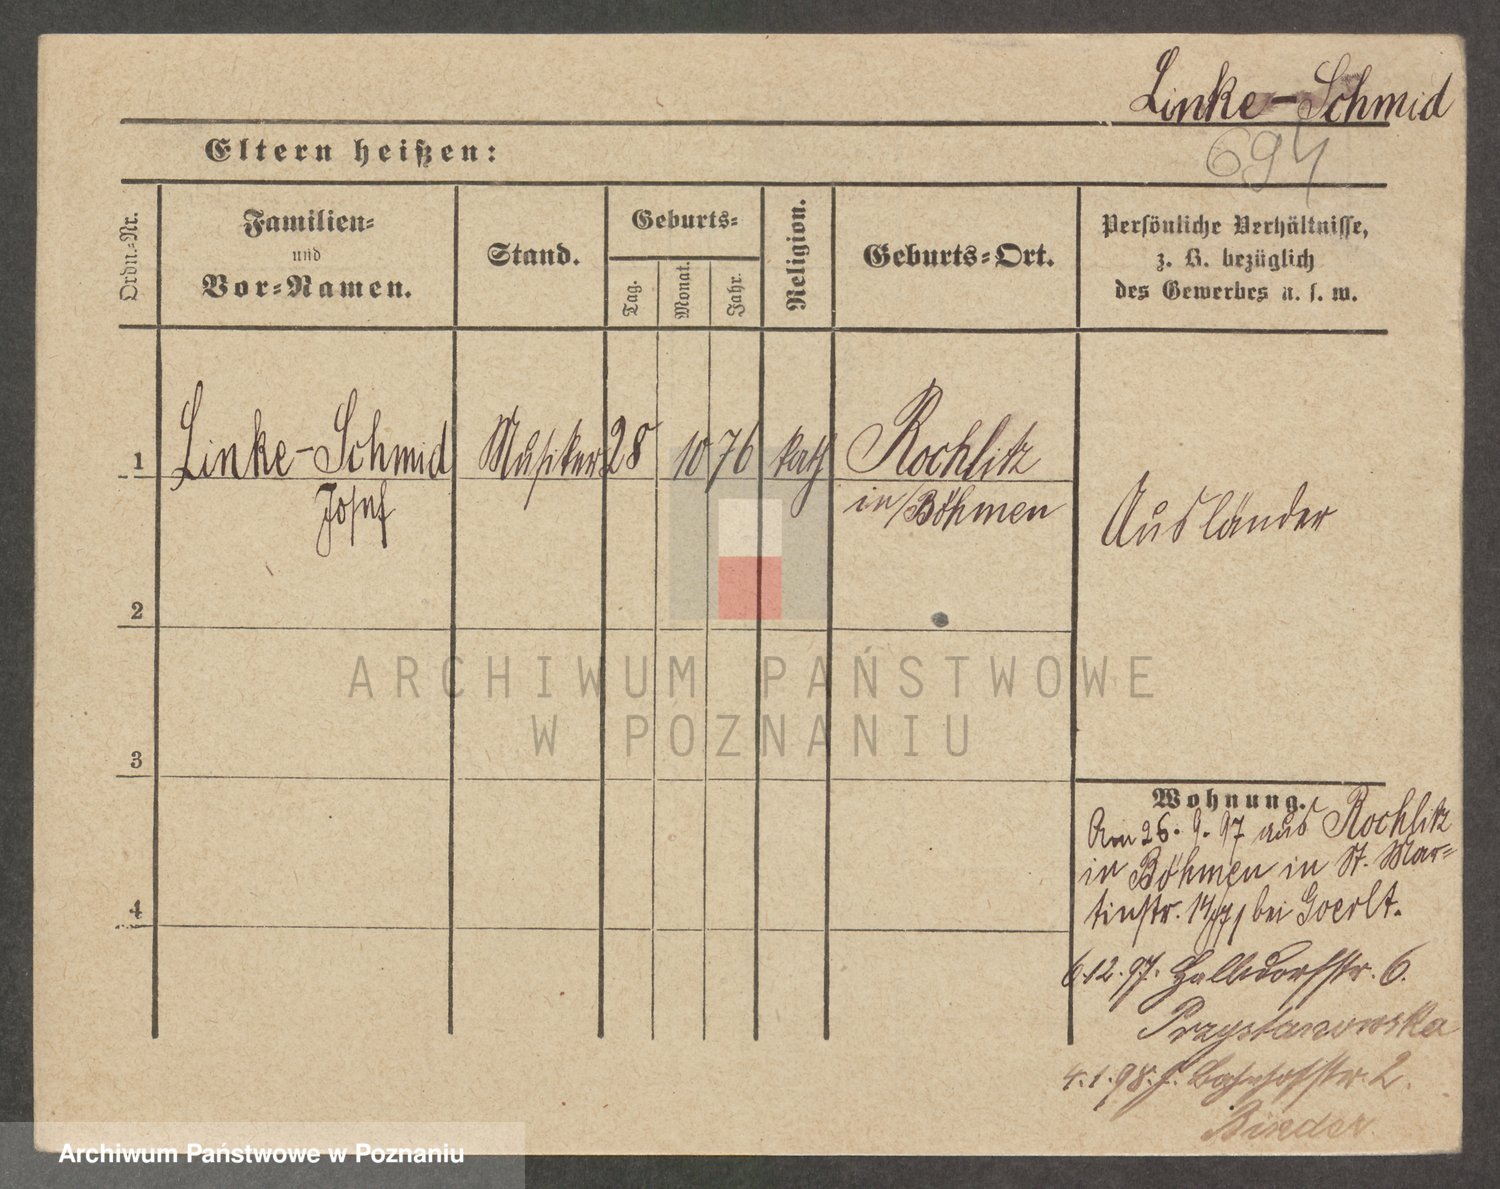 Linke-Schmid
694
Eltern heißen:
Ordn.-Nr.
Familien-
und
Vor-Namen.
Stand.
Geburts-
Tag.
Monat.
Jahr.
Religion.
Geburts-Ort.
Persönliche Verhältnisse,
z. B. bezüglich
des Gewerbes u. s. w.
1
Linke-Schmid
Josef
Musiker
28
10
76
kath
Rochlitz
in/Böhmen
Ausländer
2
3
4
ARCHIWUM PAŃSTWOWE
W POZNANIU
Wohnung.
Am 26. 9. 97 aus Rochlitz
in Böhmen in St. Mar=
tinstr. bei Goerlt.
6.12.97. Halbdorfstr. 6.
Przystanowska
4.1.98. Bahnhofstr. 2.
Binder
Archiwum Państwowe w Poznaniu